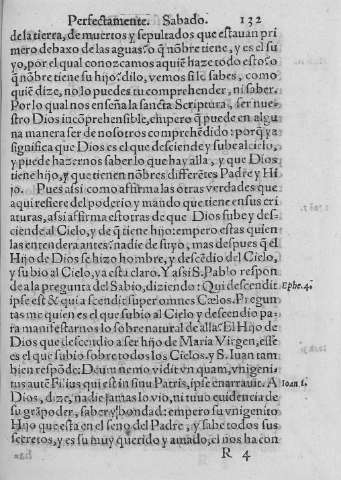 Perfectamente. Sabado. 132
de la tierra, de muertos y sepultados que estauan pri
mero debaxo de las aguas? o q̃ nõbre tiene, y es el su
yo, por el qual conozcamos aquiẽ haze todo esto? o
q̃ nõbre tiene su hijo? dilo, vemos si le sabes, como
quiẽ dize, no lo puedes tu comprehender, ni saber.
Por lo qual nos enseña la sancta Scriptura, ser nue-
stro Dios incõprehensible, empero q̃ puede en algu
na manera ser de nosotros comprehẽdido: porq̃ ya
significa que Dios es el que desciende y sube al cielo,
y puede hazernos saber lo que hay alla, y que Dios
tiene hijo, y que tienen nõbres differẽtes Padre y Hi
jo. Pues assi como affirma las otras verdades que
aqui refiere del poderio y mando que tiene en sus cri
aturas, assi affirma estotras de que Dios sube y des-
ciende al Cielo, y de q̃ tiene hijo: empero estas quien
las entendera antes? nadie de suyo, mas despues q̃ el
Hijo de Dios se hizo hombre, y descẽdio del Cielo,
y subio al Cielo, ya esta claro. Y assi S. Pablo respon
de a la pregunta del Sabio, diziendo: Qui descendit
Ephe. 4.
ipse est & qui ascendit super omnes Cœlos. Pregun
tas me quien es el que subio al Cielo y descendio pa
ra manifestarnos lo sobrenatural de alla? El Hijo de
Dios que descendio a ser hijo de Maria Virgen, esse
es el que subio sobre todos los Cielos. y S. Iuan tam
bien respõde: Deum nemo vidit vnquam, vnigeni-
tus autẽ Filius qui est in sinu Patris, ipse enarrauit. A
Ioan 1.
Dios, dize, nadie jamas lo vio, ni tuuo euidencia de
su grã poder, saber y bondad: empero su vnigenito
Hijo que esta en el seno del Padre, y sabe todos sus
secretos, y es su muy querido y amado, el nos ha con
R 4